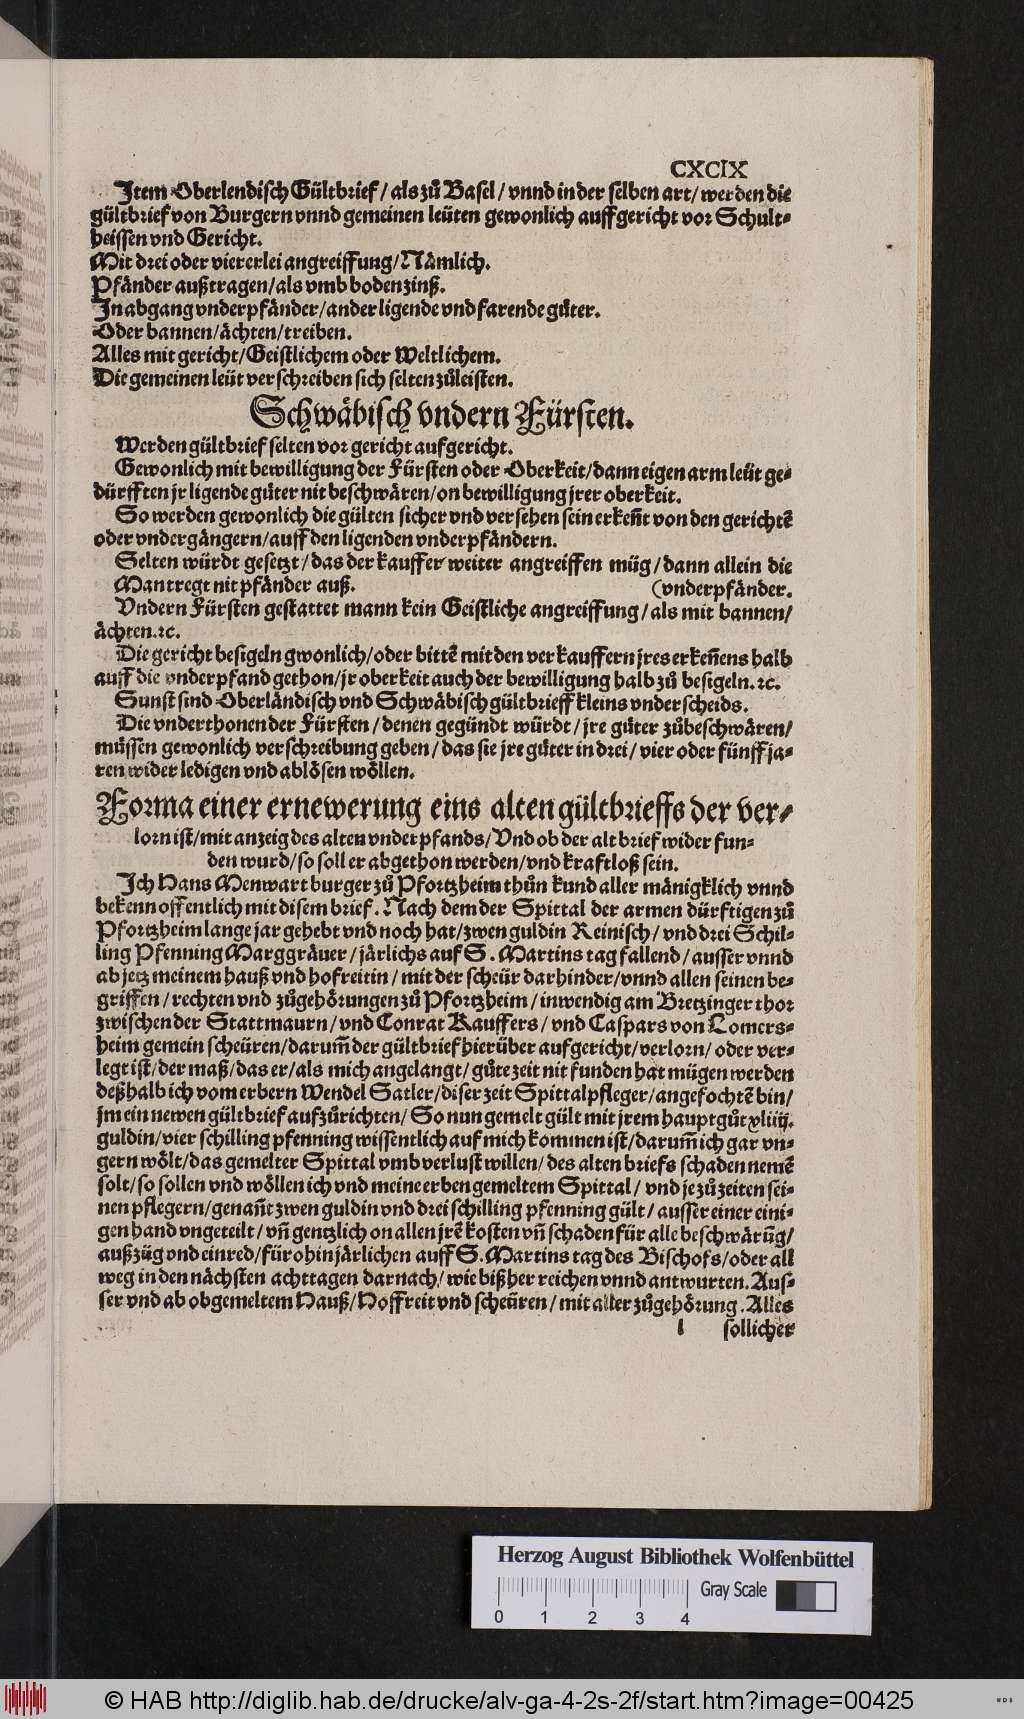 CXCIX
Item Oberlendisch Gültbrief / als zů Basel / vnnd in der selben art / werden die
gültbrief von Burgern vnnd gemeinen leüten gewonlich auffgericht vor Schult-
heissen vnd Gericht.
Mit drei oder viererlei angreiffung / Nämlich.
Pfänder außtragen / als vmb bodenzinß.
In abgang vnderpfänder / ander ligende vnd farende gůter.
Oder bannen / ächten / treiben.
Alles mit gericht / Geistlichem oder Weltlichem.
Die gemeinen leüt verschreiben sich selten zůleisten.
Schwäbisch vndern Fürsten.
Werden gültbrief selten vor gericht aufgericht.
Gewonlich mit bewilligung der Fürsten oder Oberkeit / dann eigen arm leüt ge-
dürfften jr ligende gůter nit beschwären / on bewilligung jrer oberkeit.
So werden gewonlich die gülten sicher vnd versehen sein erkeñt von den gerichtẽ
oder vndergängern / auff den ligenden vnderpfändern.
Selten würdt gesetzt / das der kauffer weiter angreiffen müg / dann allein die
Man tregt nit pfänder auß. (vnderpfänder.
Vndern Fürsten gestattet mann kein Geistliche angreiffung / als mit bannen /
ächten. ꝛc.
Die gericht besigeln gwonlich / oder bittẽ mit den verkauffern jres erkeñens halb
auff die vnderpfand gethon / jr oberkeit auch der bewilligung halb zů besigeln. ꝛc.
Sunst sind Oberländisch vnd Schwäbisch gültbrieff kleins vnderscheids.
Die vnderthonen der Fürsten / denen gegündt würdt / jre gůter zůbeschwären /
müssen gewonlich verschreibung geben / das sie jre gůter in drei / vier oder fünff ja-
ren wider ledigen vnd ablösen wöllen.
Forma einer ernewerung eins alten gültbrieffs der ver-
lorn ist / mit anzeig des alten vnderpfands / Vnd ob der alt brief wider fun-
den wurd / so soll er abgethon werden / vnd kraftloß sein.
Ich Hans Menwart burger zů Pfortzheim thůn kund aller mänigklich vnnd
bekenn offentlich mit disem brief. Nach dem der Spittal der armen dürftigen zů
Pfortzheim lange jar gehebt vnd noch hat / zwen guldin Reinisch / vnd drei Schil-
ling Pfenning Marggräuer / järlichs auf S. Martins tag fallend / ausser vnnd
ab jetz meinem hauß vnd hofreitin / mit der scheür darhinder / vnnd allen seinen be-
griffen / rechten vnd zůgehörungen zů Pfortzheim / inwendig am Bretzinger thor
zwischen der Stattmaurn / vnd Conrat Kauffers / vnd Caspars von Lomers-
heim gemein scheüren / darum̃ der gültbrief hierüber aufgericht / verlorn / oder ver-
legt ist / der maß / das er / als mich angelangt / gůte zeit nit funden hat mügen werden
deßhalb ich vom erbern Wendel Satler / diser zeit Spittalpfleger / angefochtẽ bin /
jm ein newen gültbrief aufzůrichten / So nun gemelt gült mit jrem hauptgůt xliiij.
guldin / vier schilling pfenning wissentlich auf mich kommen ist / darum̃ ich gar vn-
gern wölt / das gemelter Spittal vmb verlust willen / des alten briefs schaden nemẽ
solt / so sollen vnd wöllen ich vnd meine erben gemeltem Spittal / vnd je zů zeiten sei-
nen pflegern / genañt zwen guldin vnd drei schilling pfenning gült / ausser einer eini-
gen hand vngeteilt / vñ gentzlich on allen jrẽ kosten vñ schaden für alle beschwärũg /
außzüg vnd einred / für ohin järlichen auff S. Martins tag des Bischofs / oder all
weg in den nächsten acht tagen darnach / wie bißher reichen vnnd antwurten. Aus-
ser vnd ab obgemeltem Hauß / Hoffreit vnd scheüren / mit aller zůgehörung. Alles
l sollicher
Herzog August Bibliothek Wolfenbüttel
Gray Scale
0 1 2 3 4
© HAB http://diglib.hab.de/drucke/alv-ga-4-2s-2f/start.htm?image=00425
WDB